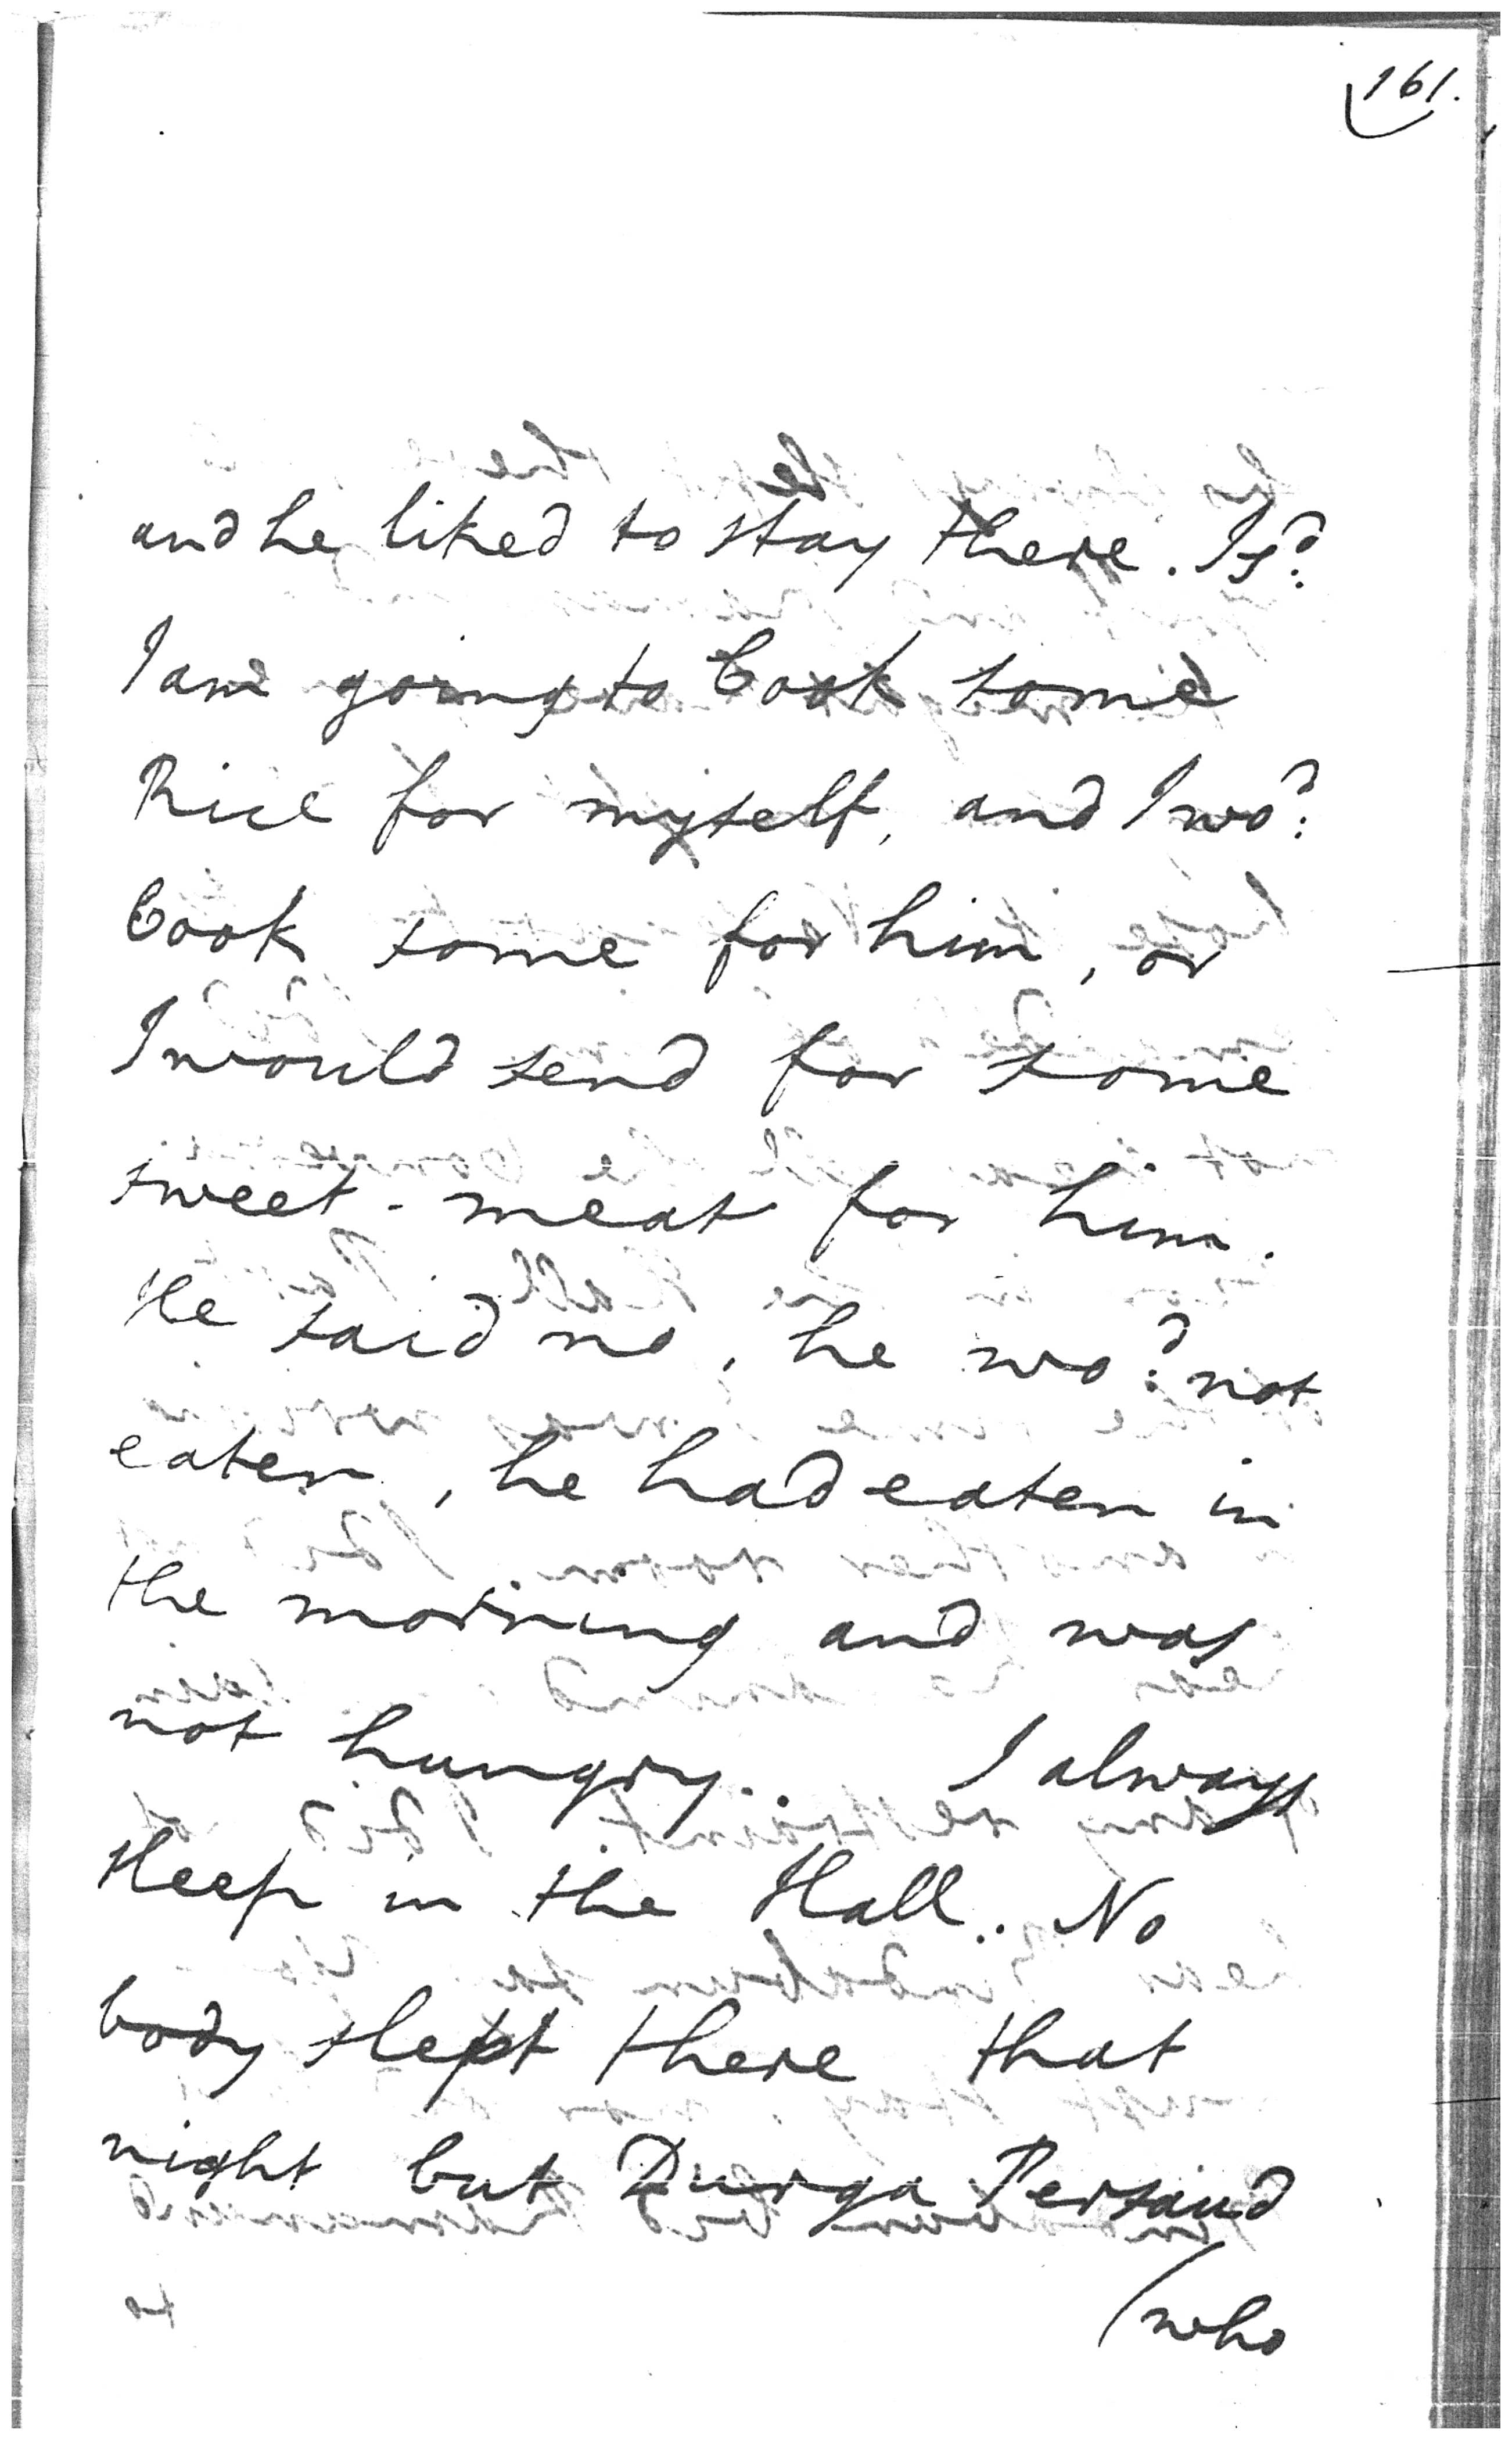 161.
and he liked to stay there. I sd.
I am going to Cook some
Rice for myself, and I wod.
Cook some for him, or
I would send for some
sweet-meat for him.
He said no, he wod. not
eaten, he had eaten in
the morning and was
not hungry. I always
sleep in the Hall. No
body slept there that
night but Durga Persaud
(who